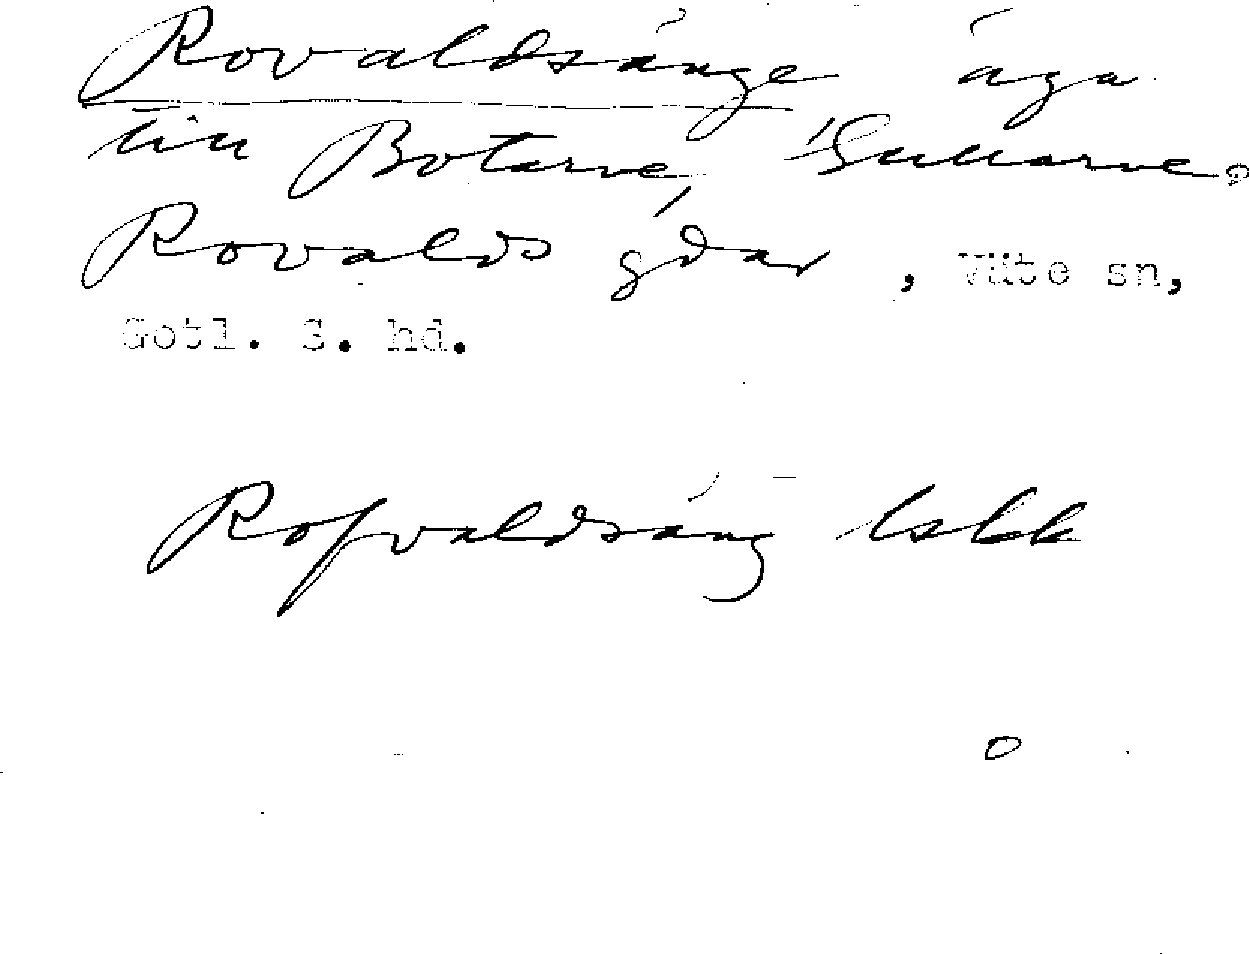 Rovaldsänge äga
till Botarve, Gullarve o
Rovalds gdar, Väte sn,
Gotl. S. hd.
Rofvaldsäng lskk